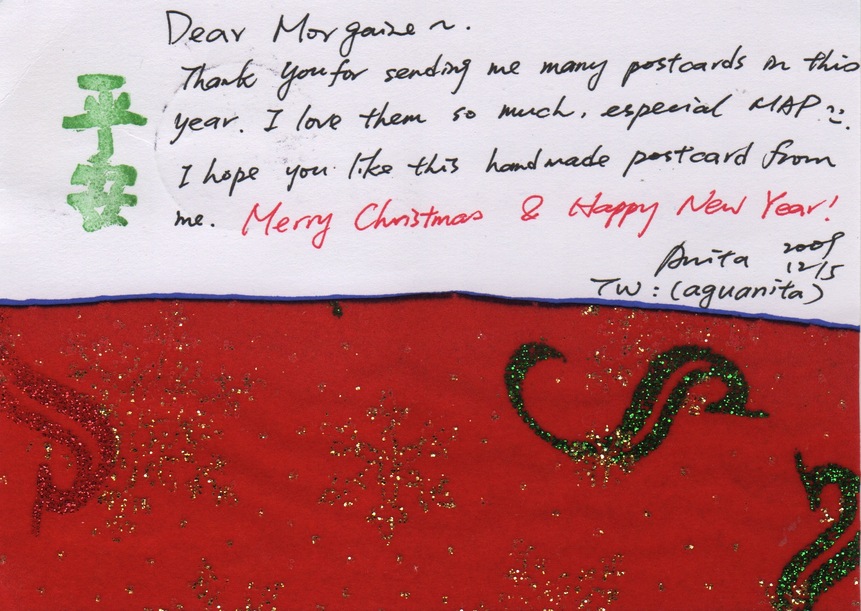 Dear Morgaine ~.
Thank you for sending me many postcards in this
year. I love them so much, especial MAP :).
I hope you like this handmade postcard from
me. Merry Christmas & Happy New Year!
Anita 2009
12/15
TW: (aguanita)
平安